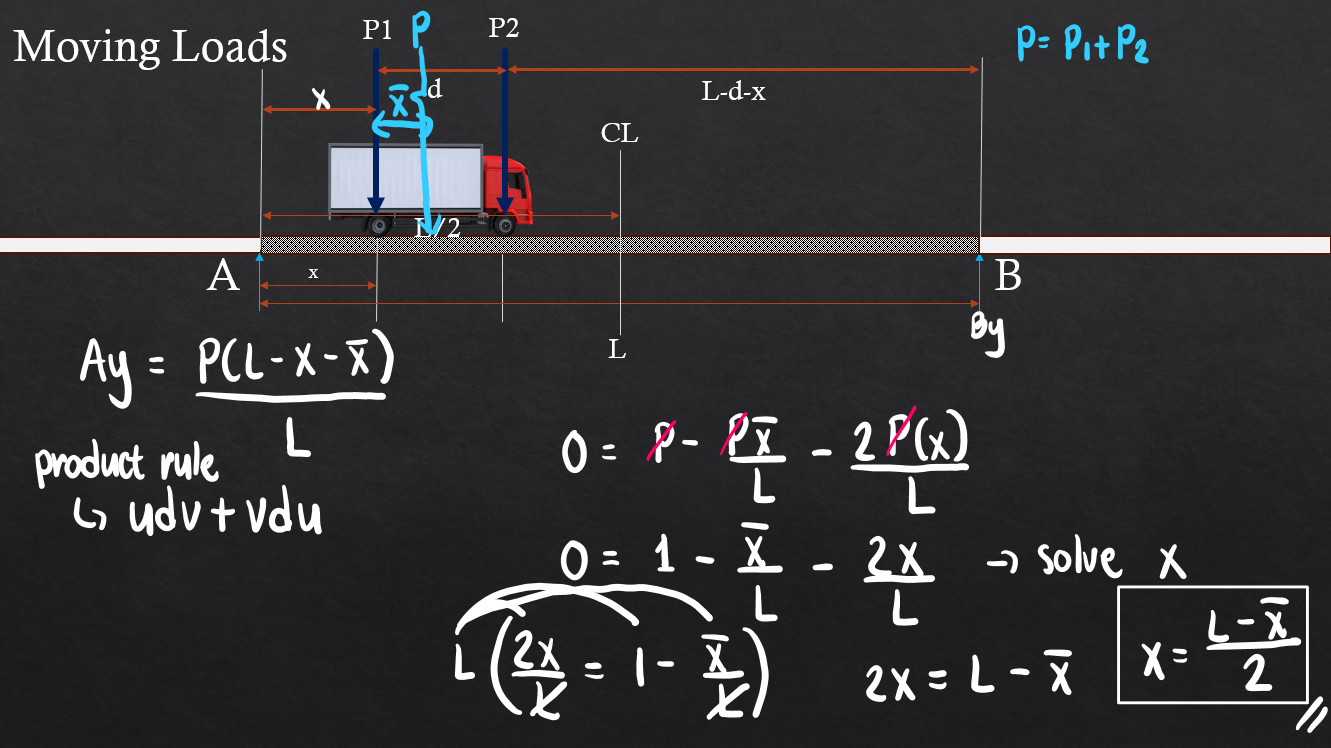 Moving Loads
P1 P P2
P = P₁ + P₂
x x̄ d L-d-x
CL
L/2
A B
x
By
L
Ay = P(L - x - x̄) / L
product rule
↳ udv + vdu
0 = P - Px̄/L - 2P(x)/L
0 = 1 - x̄/L - 2x/L → solve x
L(2x/L = 1 - x̄/L) 2x = L - x̄
x = (L - x̄)/2